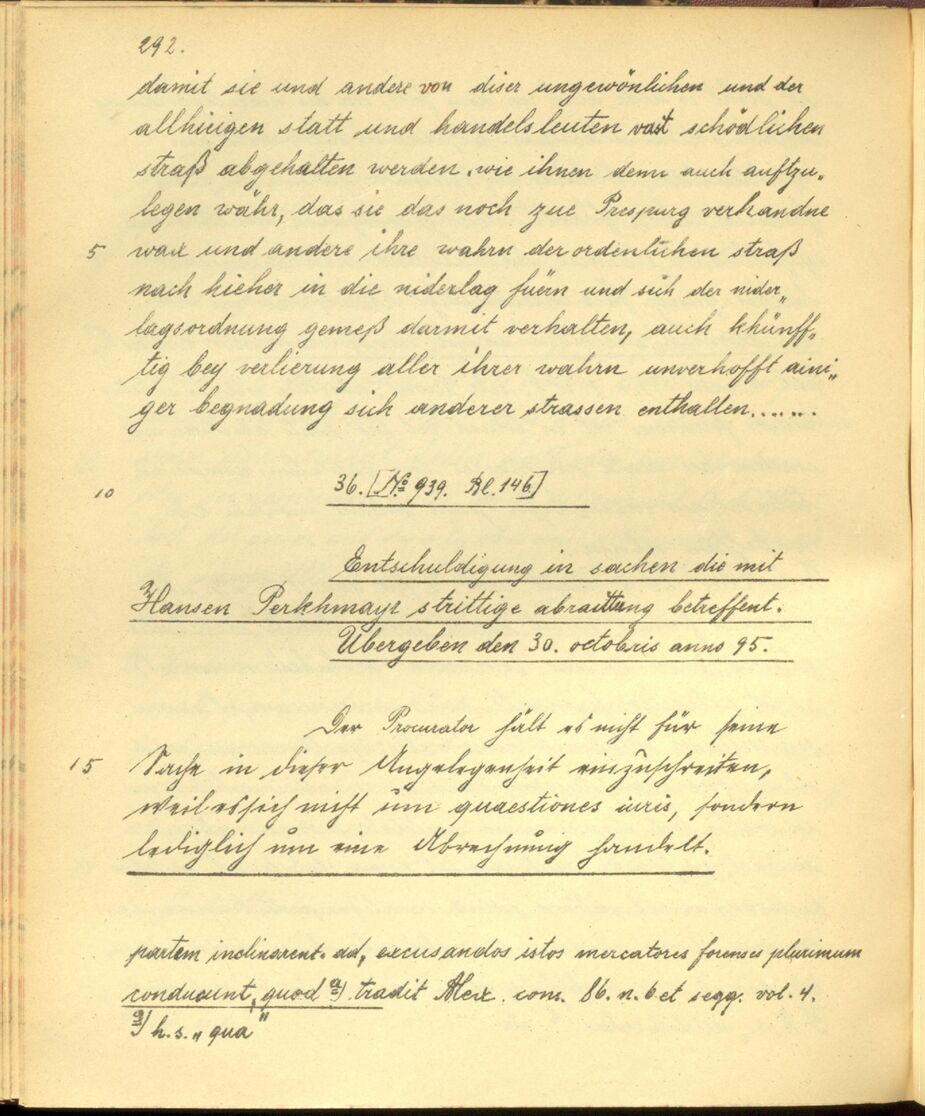 292.
damit sie und andere von diser ungewönlichen und der
allhieigen statt und handelsleuten vast schödlichen
straß abgehalten werden. wie ihnen denn auch auftzu„
legen währ, das sie das noch zue Prespurg verhandne
5 wax und andere ihre wahrn der ordenlichen straß
nach hieher in die niderlag füern und sich der nider„
lagsordnung gemeß darmit verhalten, auch khünff„
tig bey verlierung aller ihrer wahrn unverhofft aini„
ger begnadung sich anderer strassen enthalten......
10 36. [№ 939. Bl. 146]
Entschuldigung in sachen die mit
Hansen Perkhmayr strittige abraittung betreffent.
Übergeben den 30. octobris anno 95.
Der Procurator hält es nicht für seine
15 Sache in dieser Angelegenheit einzuschreiten,
weil es sich nicht um quaestiones iuris, sondern
lediglich um eine Abrechnung handelt.
partem inclinarent. ad, excusandos istos mercatores forenses plurimum
conducunt, quod a) tradit Alex. cons. 86. n. 6 et segg. vol. 4.
a) h. s. „qua"